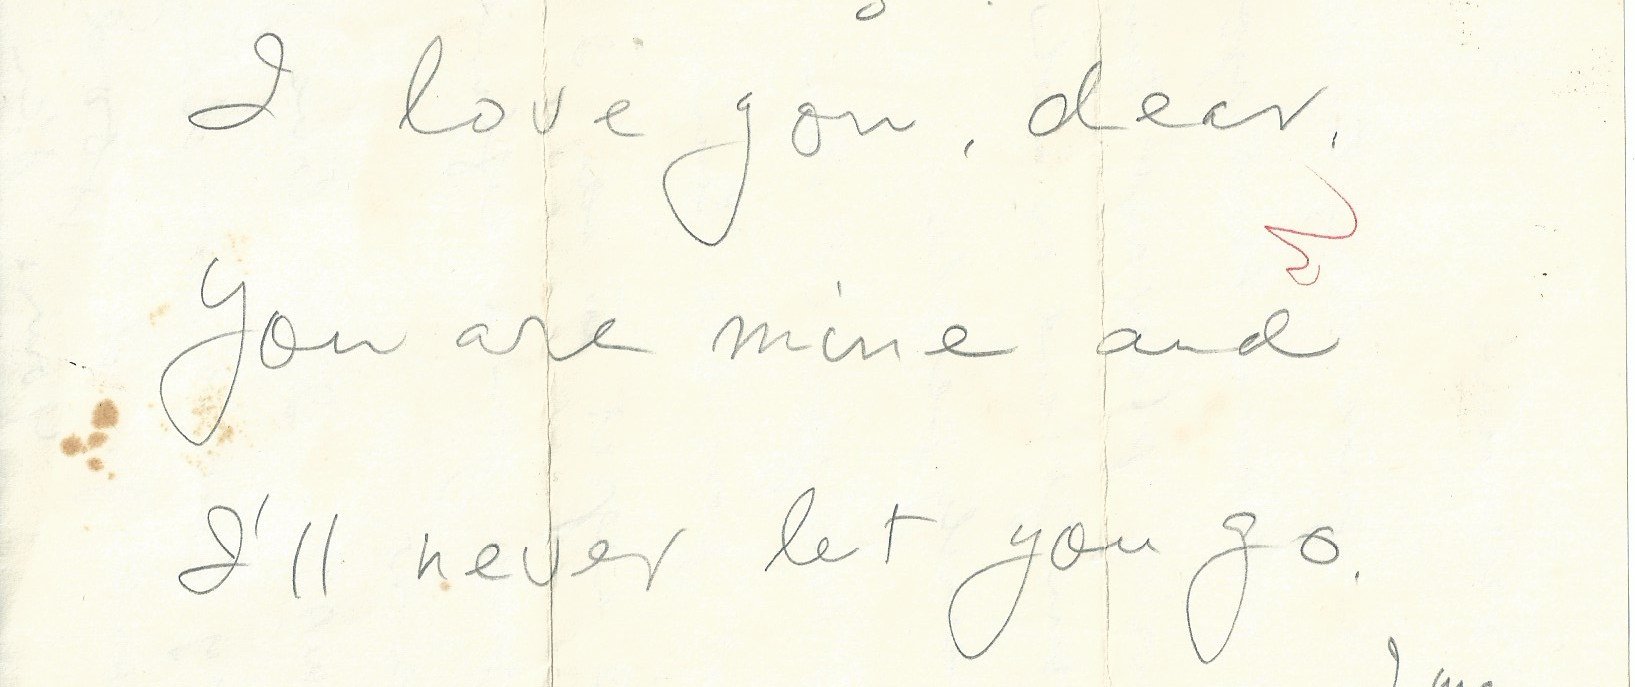 I love you, dear.
You are mine and
I'll never let you go.